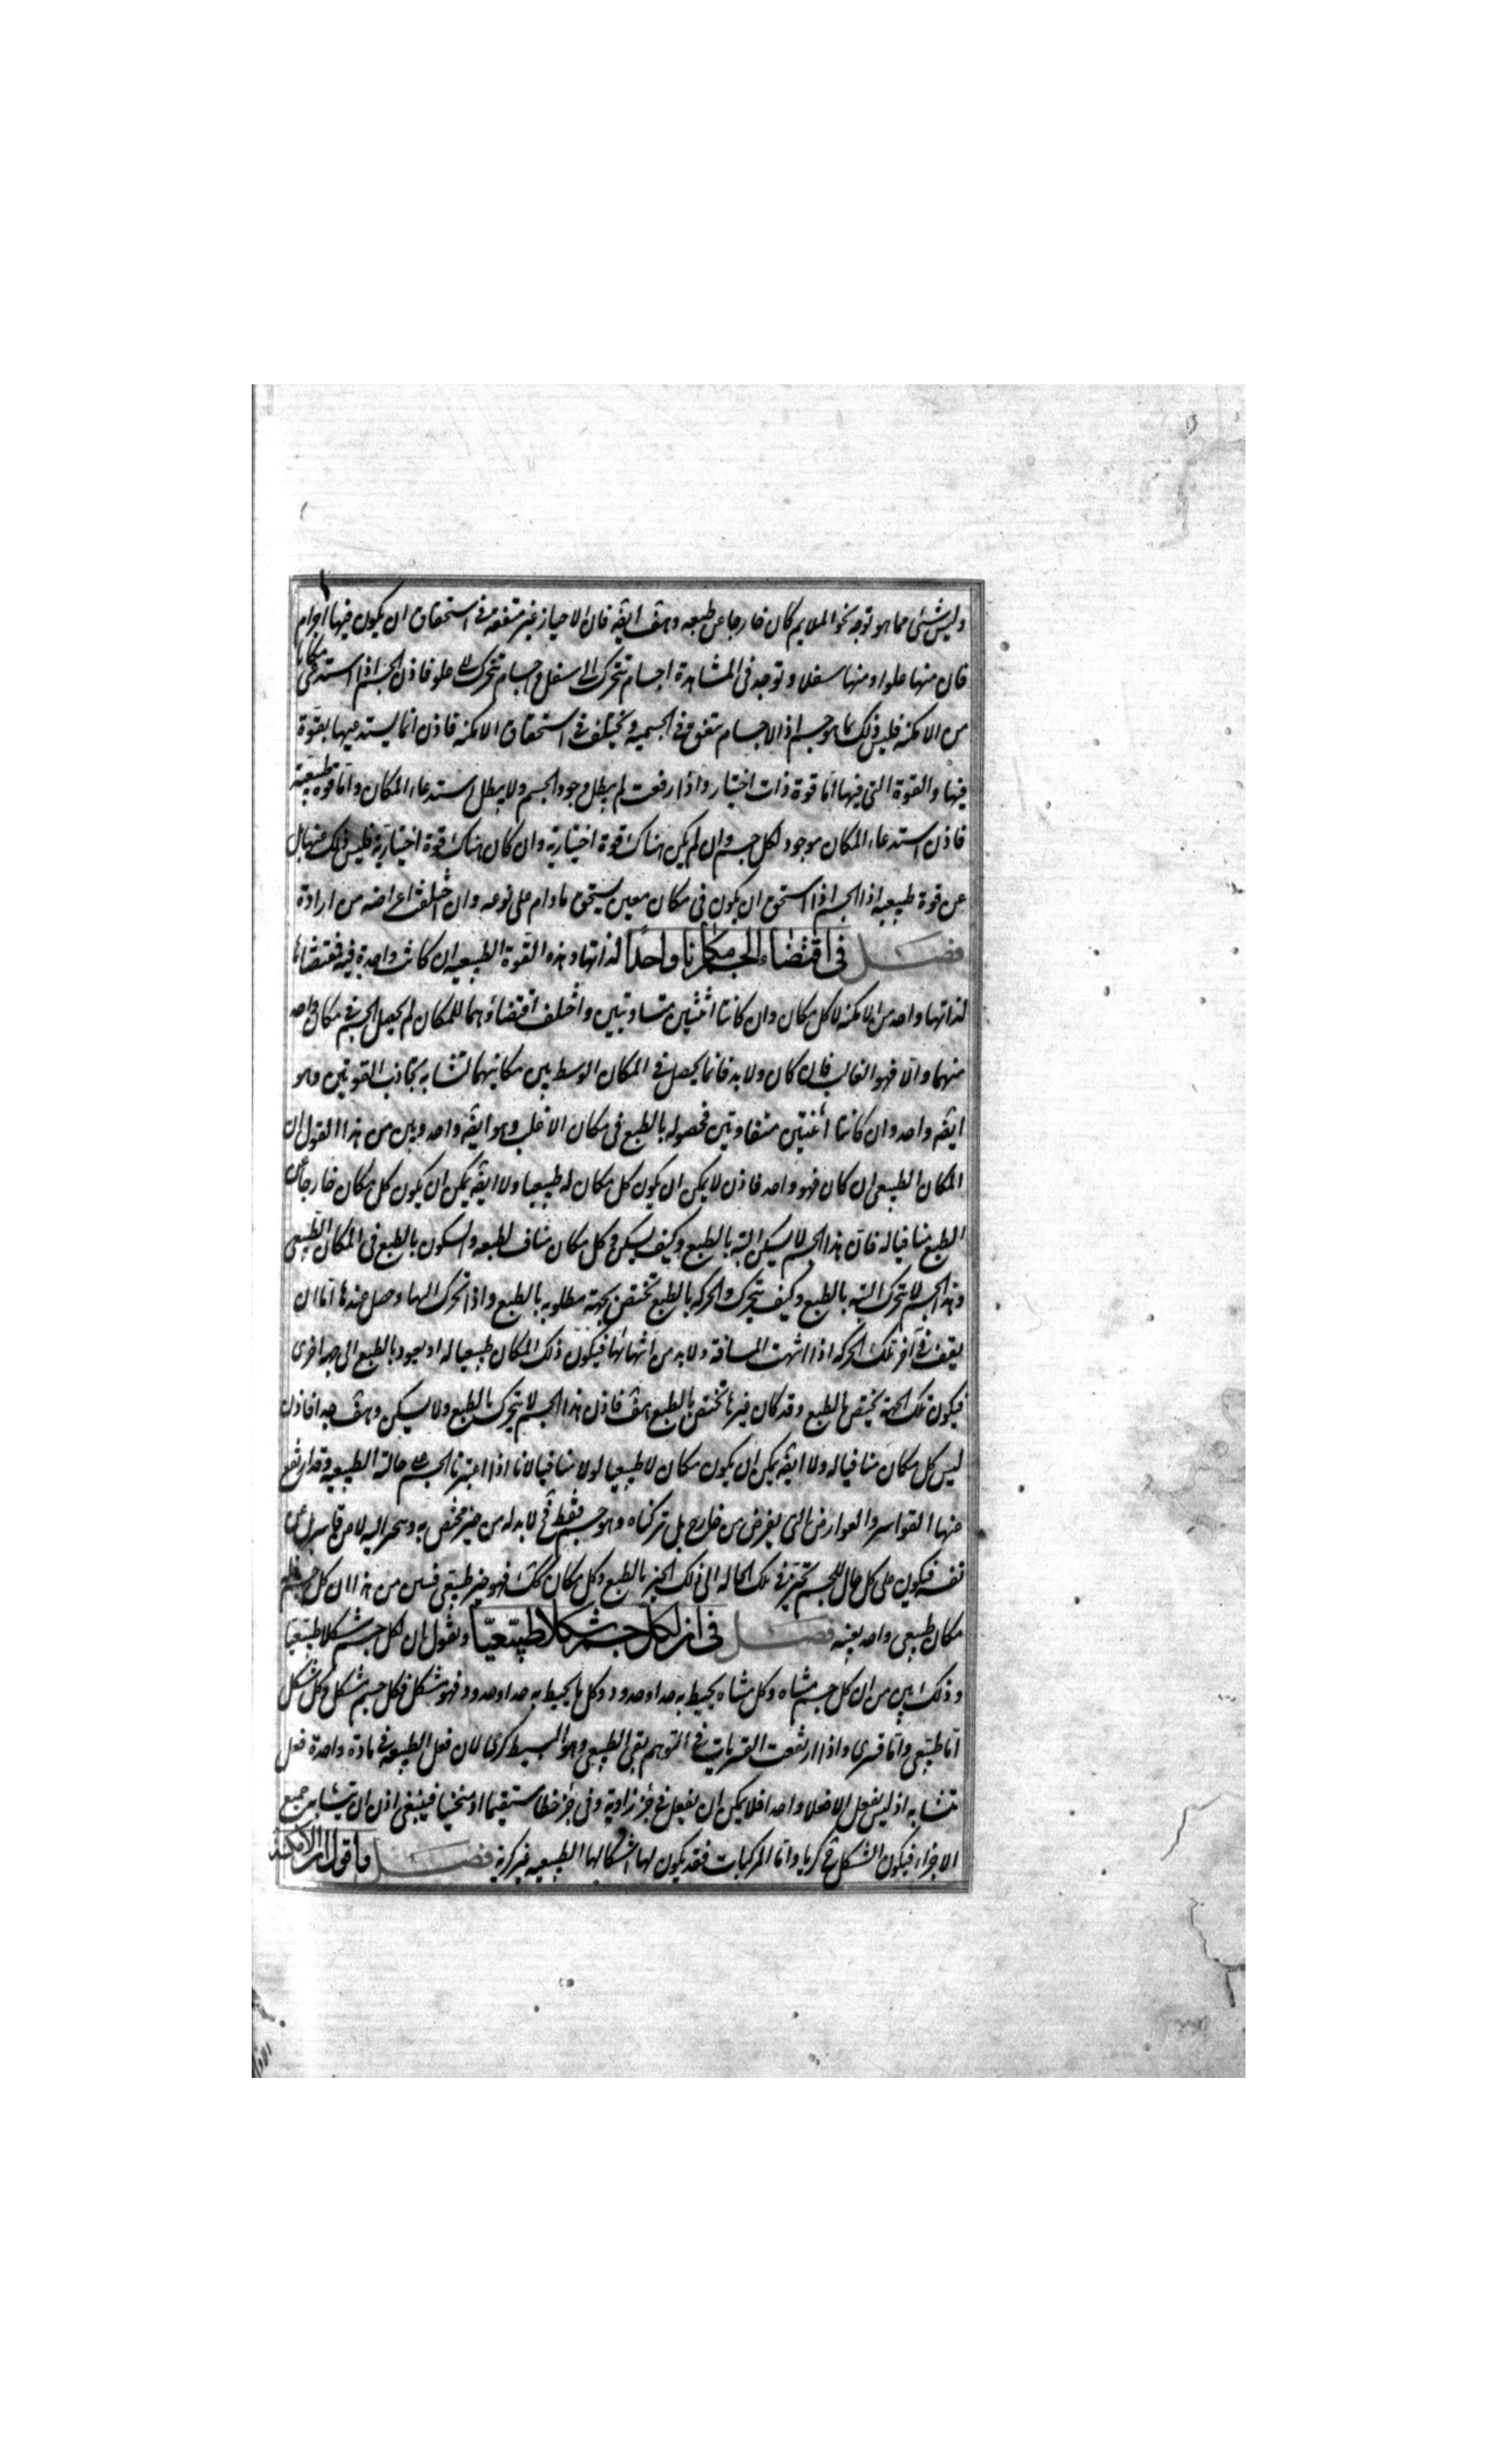 وليس شئ مما هو توجه نحو الملايم كان خارجا عن طبعه وهف ايضه فان الاحياز غير متفقة فى استحقاق ان يكون فيها اجرام
فان منها علوا ومنها سفلا وتوجد فى المشاهدة اجسام تتحرك الى سفل واجسام تتحرك الى علو فاذن الجسم اذا استدعى مكانا
من الامكنه فليس ذلك بما هو جسم اذ الاجسام تتفق فى الجسمية وتختلف فى استحقاق الامكنه فاذن انما يستدعيها بقوة
فيها والقوة التى فيها اما قوة ذات اختيار واذا رفعت لم يبطل وجود الجسم ولا يبطل استدعاء المكان واما قوة طبيعية
فاذن استدعاء المكان موجود لكل جسم وان لم يكن هناك قوة اختيارية وان كان هناك قوة اختيارية فليس ذلك عنها بل
عن قوة طبيعيه اذ الجسم اذا استحق ان يكون فى مكان معين يستحق مادام على نوعه وان اختلفت اعراضه من ارادة
فصل فى اقتضاء الجسم مكانا واحدا لذاتها وهذه القوة الطبيعيه ان كانت واحدة فيه فمقتضاها
لذاتها واحد من الامكنه لا كل مكان وان كانتا اثنتين متساويتين واختلف اقتضاؤهما للمكان لم يحصل الجسم فى مكان واحد
منهما والا فهو الغالب فان كان ولا بد فانما يحصل فى المكان الوسط بين مكانيهما لتشابه تجاذب القوتين وهو
ايضه واحد وان كانتا اثنتين متفاوتين فحصوله بالطبع فى مكان الاغلب وهو ايضه واحد وبين من هذا القول ان
المكان الطبيعى ان كان فهو واحد فاذن لا يمكن ان يكون كل مكان له طبيعيا ولا ايضه يمكن ان يكون كل مكان خارجا عن
الطبع منافيا له فان هذا الجسم لا يسكن البته بالطبع وكيف يسكن وكل مكان مناف لطبعه والسكون بالطبع فى المكان الطبيعى
وهذا الجسم لا يتحرك البته بالطبع وكيف يتحرك والحركه بالطبع تختص بجهة مطلوبه بالطبع واذا تحرك اليها وحصل عندها اما ان
يقف فى آخر تلك الحركه اذا انتهت المسافة ولا بد من انتهائها فيكون ذلك المكان طبيعيا له او يعود بالطبع الى جهه اخرى
فيكون تلك الجهة يختص بالطبع وقد كان غيرها تختص بالطبع هف فاذن هذا الجسم لا يتحرك بالطبع ولا يسكن وهف جدا فاذن
ليس كل مكان منافيا له ولا ايضه يمكن ان يكون مكان لا طبيعيا له ولا منافيا لانا اذا اعتبرنا الجسم على حالته الطبيعيه وقد ارتفع
عنها القواسر والعوارض التى يعرض من خارج بل تركناه وهو جسم فقط فح لابد له من حيز مختص به وتحيز اليه لا من قاسر بل عن
نفسه فيكون على كل حال للجسم تحيز فى تلك الحاله الى ذلك الحيز بالطبع وكل مكان كك فهو حيز طبيعى فبين من هذا ان كل جسم فله
مكان طبيعى واحد بعينه فصل فى ان لكل جسم شكلا طبيعيا ونقول ان لكل جسم شكلا طبيعيا
وذلك بين من ان كل جسم متناه وكل متناه يحيط به حد او حدود وكل ما يحيط به حد او حدود فهو مشكل فكل جسم مشكل وكل شكل
اما طبيعى واما قسرى واذا ارتفعت القسريات فى التوهم بقى الطبيعى وهو البسيط كرى لان فعل الطبيعه فى مادة واحدة فعل
متشابه اذ ليس يفعل الا فعلا واحدا فلا يمكن ان يفعل فى جزء زاوية وفى جزء خطا مستقيما او منحنيا فينبغى اذن ان يتشابه جميع
الاجزاء فيكون الشكل ح كريا واما المركبات فقد يكون لها اشكالها الطبيعيه غير كرية فصل واقول ان الامكنة